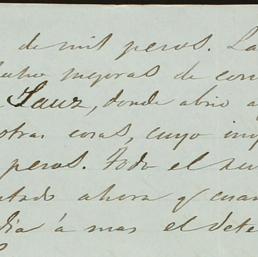 de mil pesos. La
hecho mejoras de con
Sauz, donde abrió a
otras cosas, cuyo imp
pesos. Todo el
ahora q/ cuan
dia á mas el dete